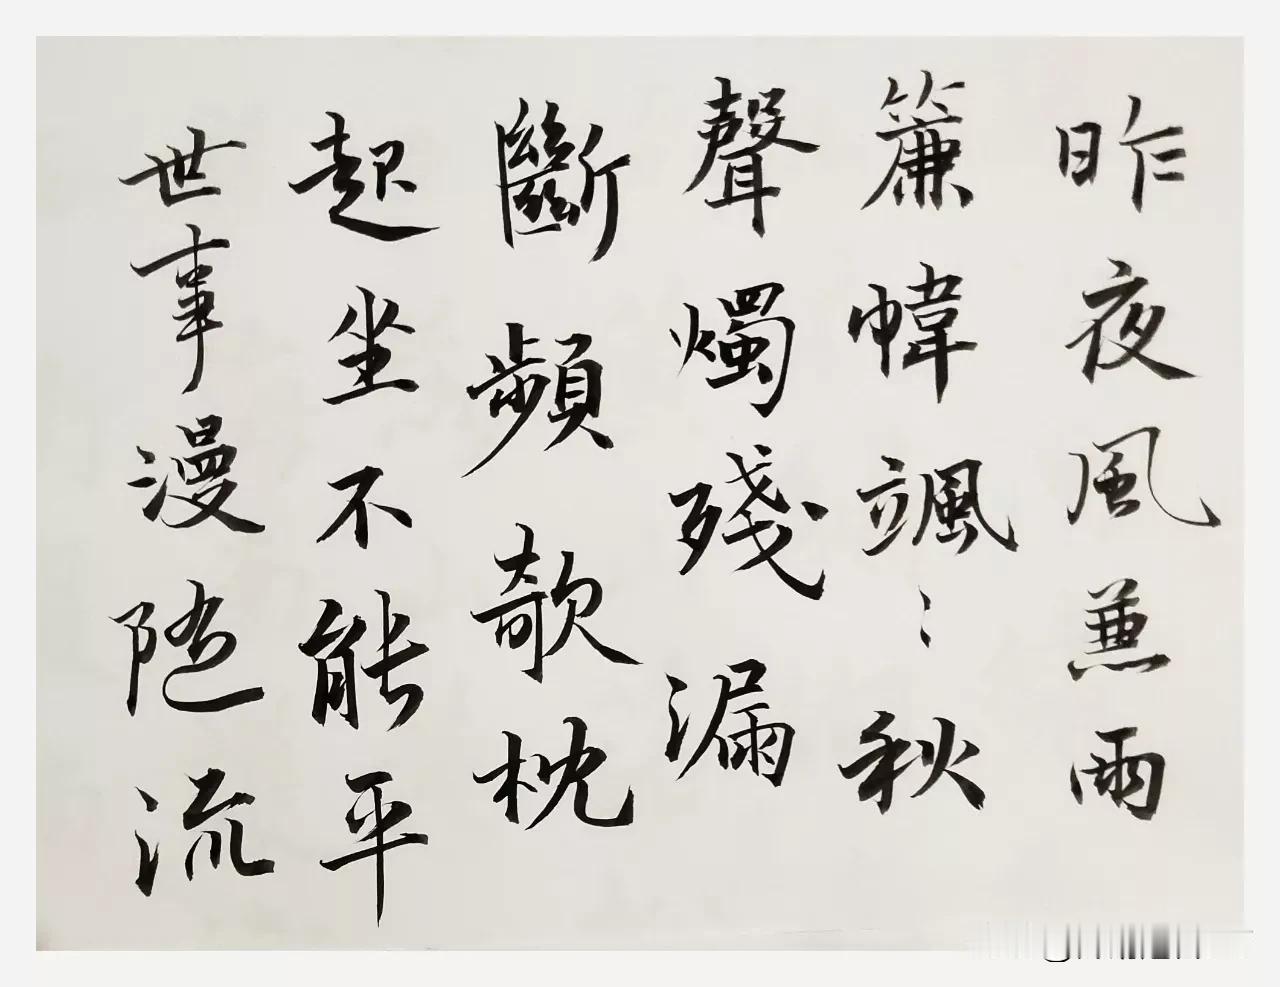 昨夜風兼雨
簾幃颯〻秋
聲燭殘漏
斷頻欹枕
起坐不能平
世事漫随流